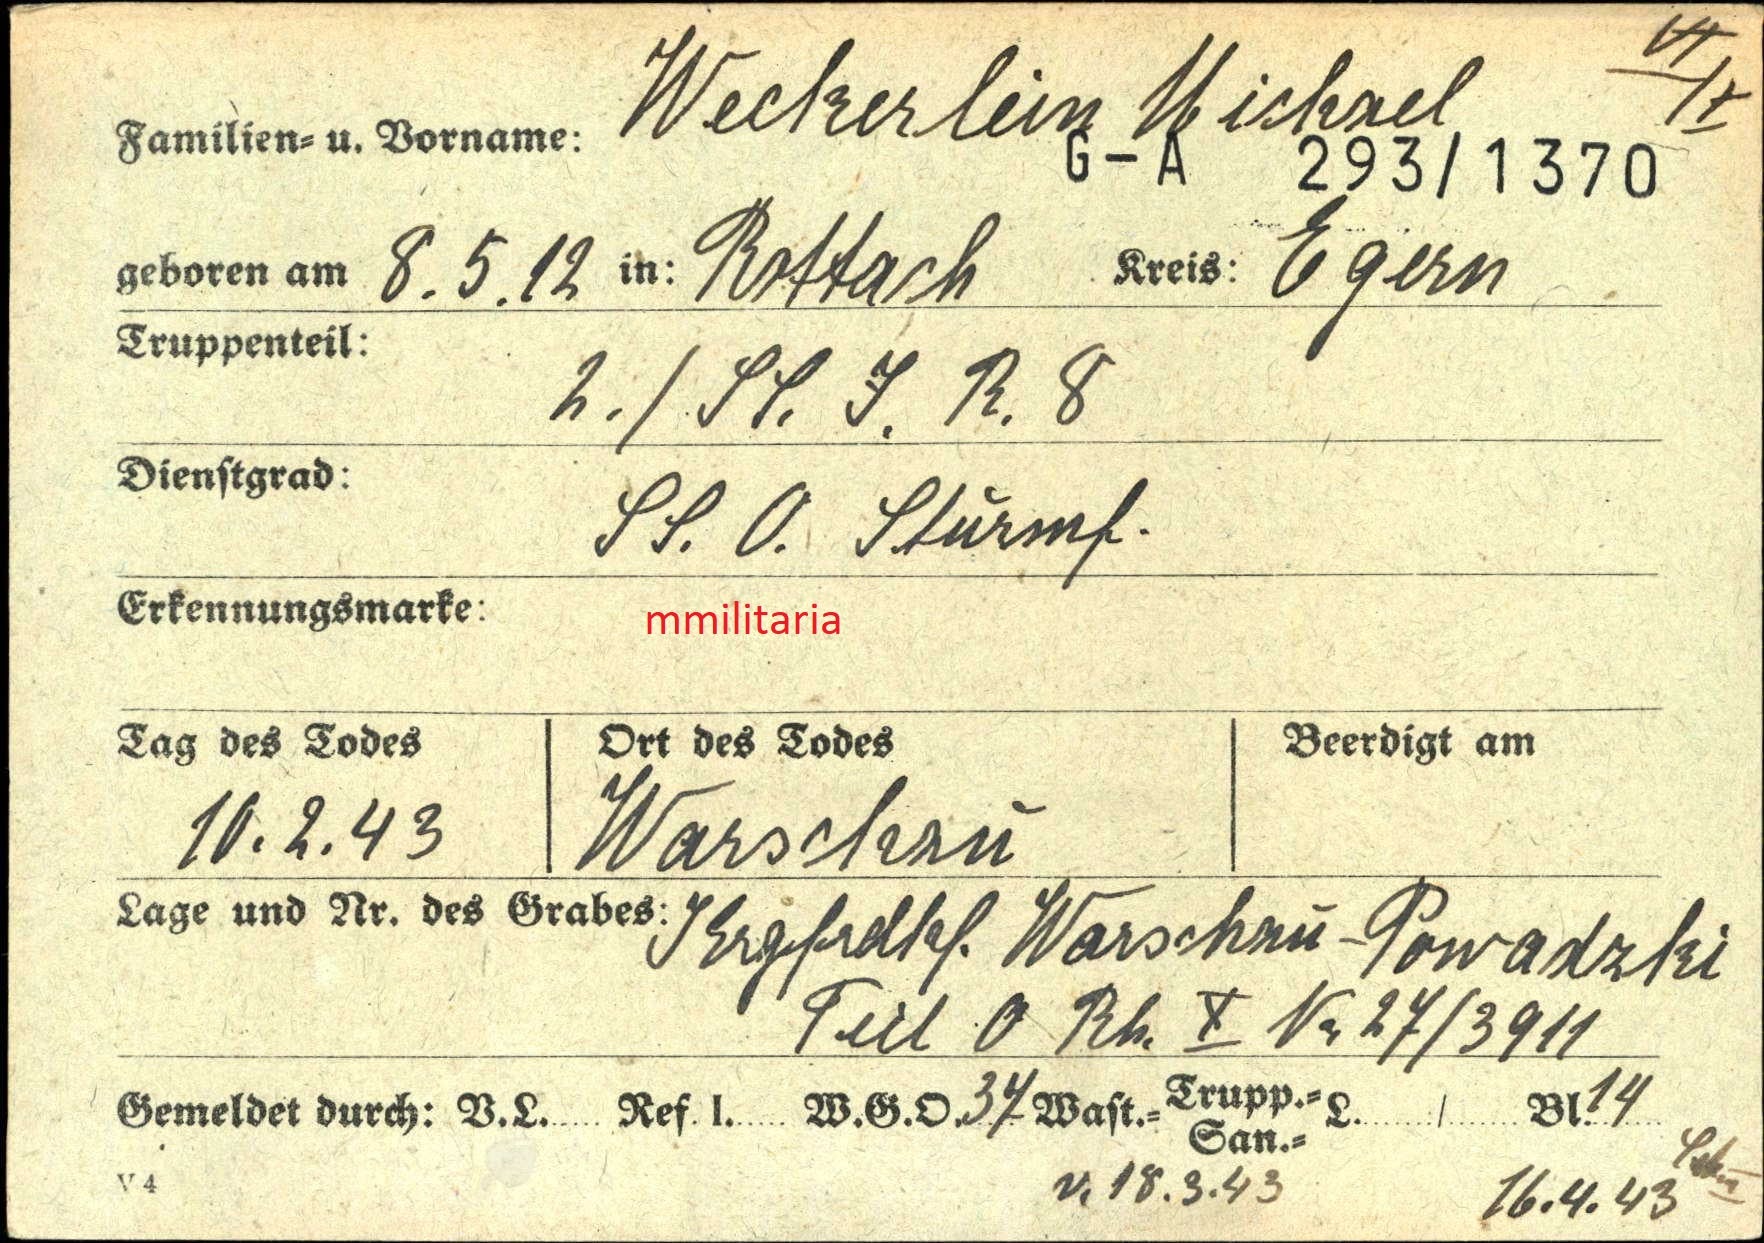 Familien- u. Vorname: Weckerlein Michael
G-A 293/1370
geboren am 8.5.12 in: Rottach Kreis: Egern
Truppenteil:
2./SS. I. R. 8
Dienstgrad:
SS. O. Stŭrmf.
Erkennungsmarke:
mmilitaria
Tag des Todes Ort des Todes Beerdigt am
10.2.43 Warschaŭ
Lage und Nr. des Grabes: Krgfrdhf. Warschaŭ-Powadzki
Teil O Rh. X Nr 27/3911
Gemeldet durch: V.L..... Ref. l...... W.G.O.37 Wast.- Trupp.- San.- L......../....... Bl.14
V 4
v. 18.3.43 16.4.43